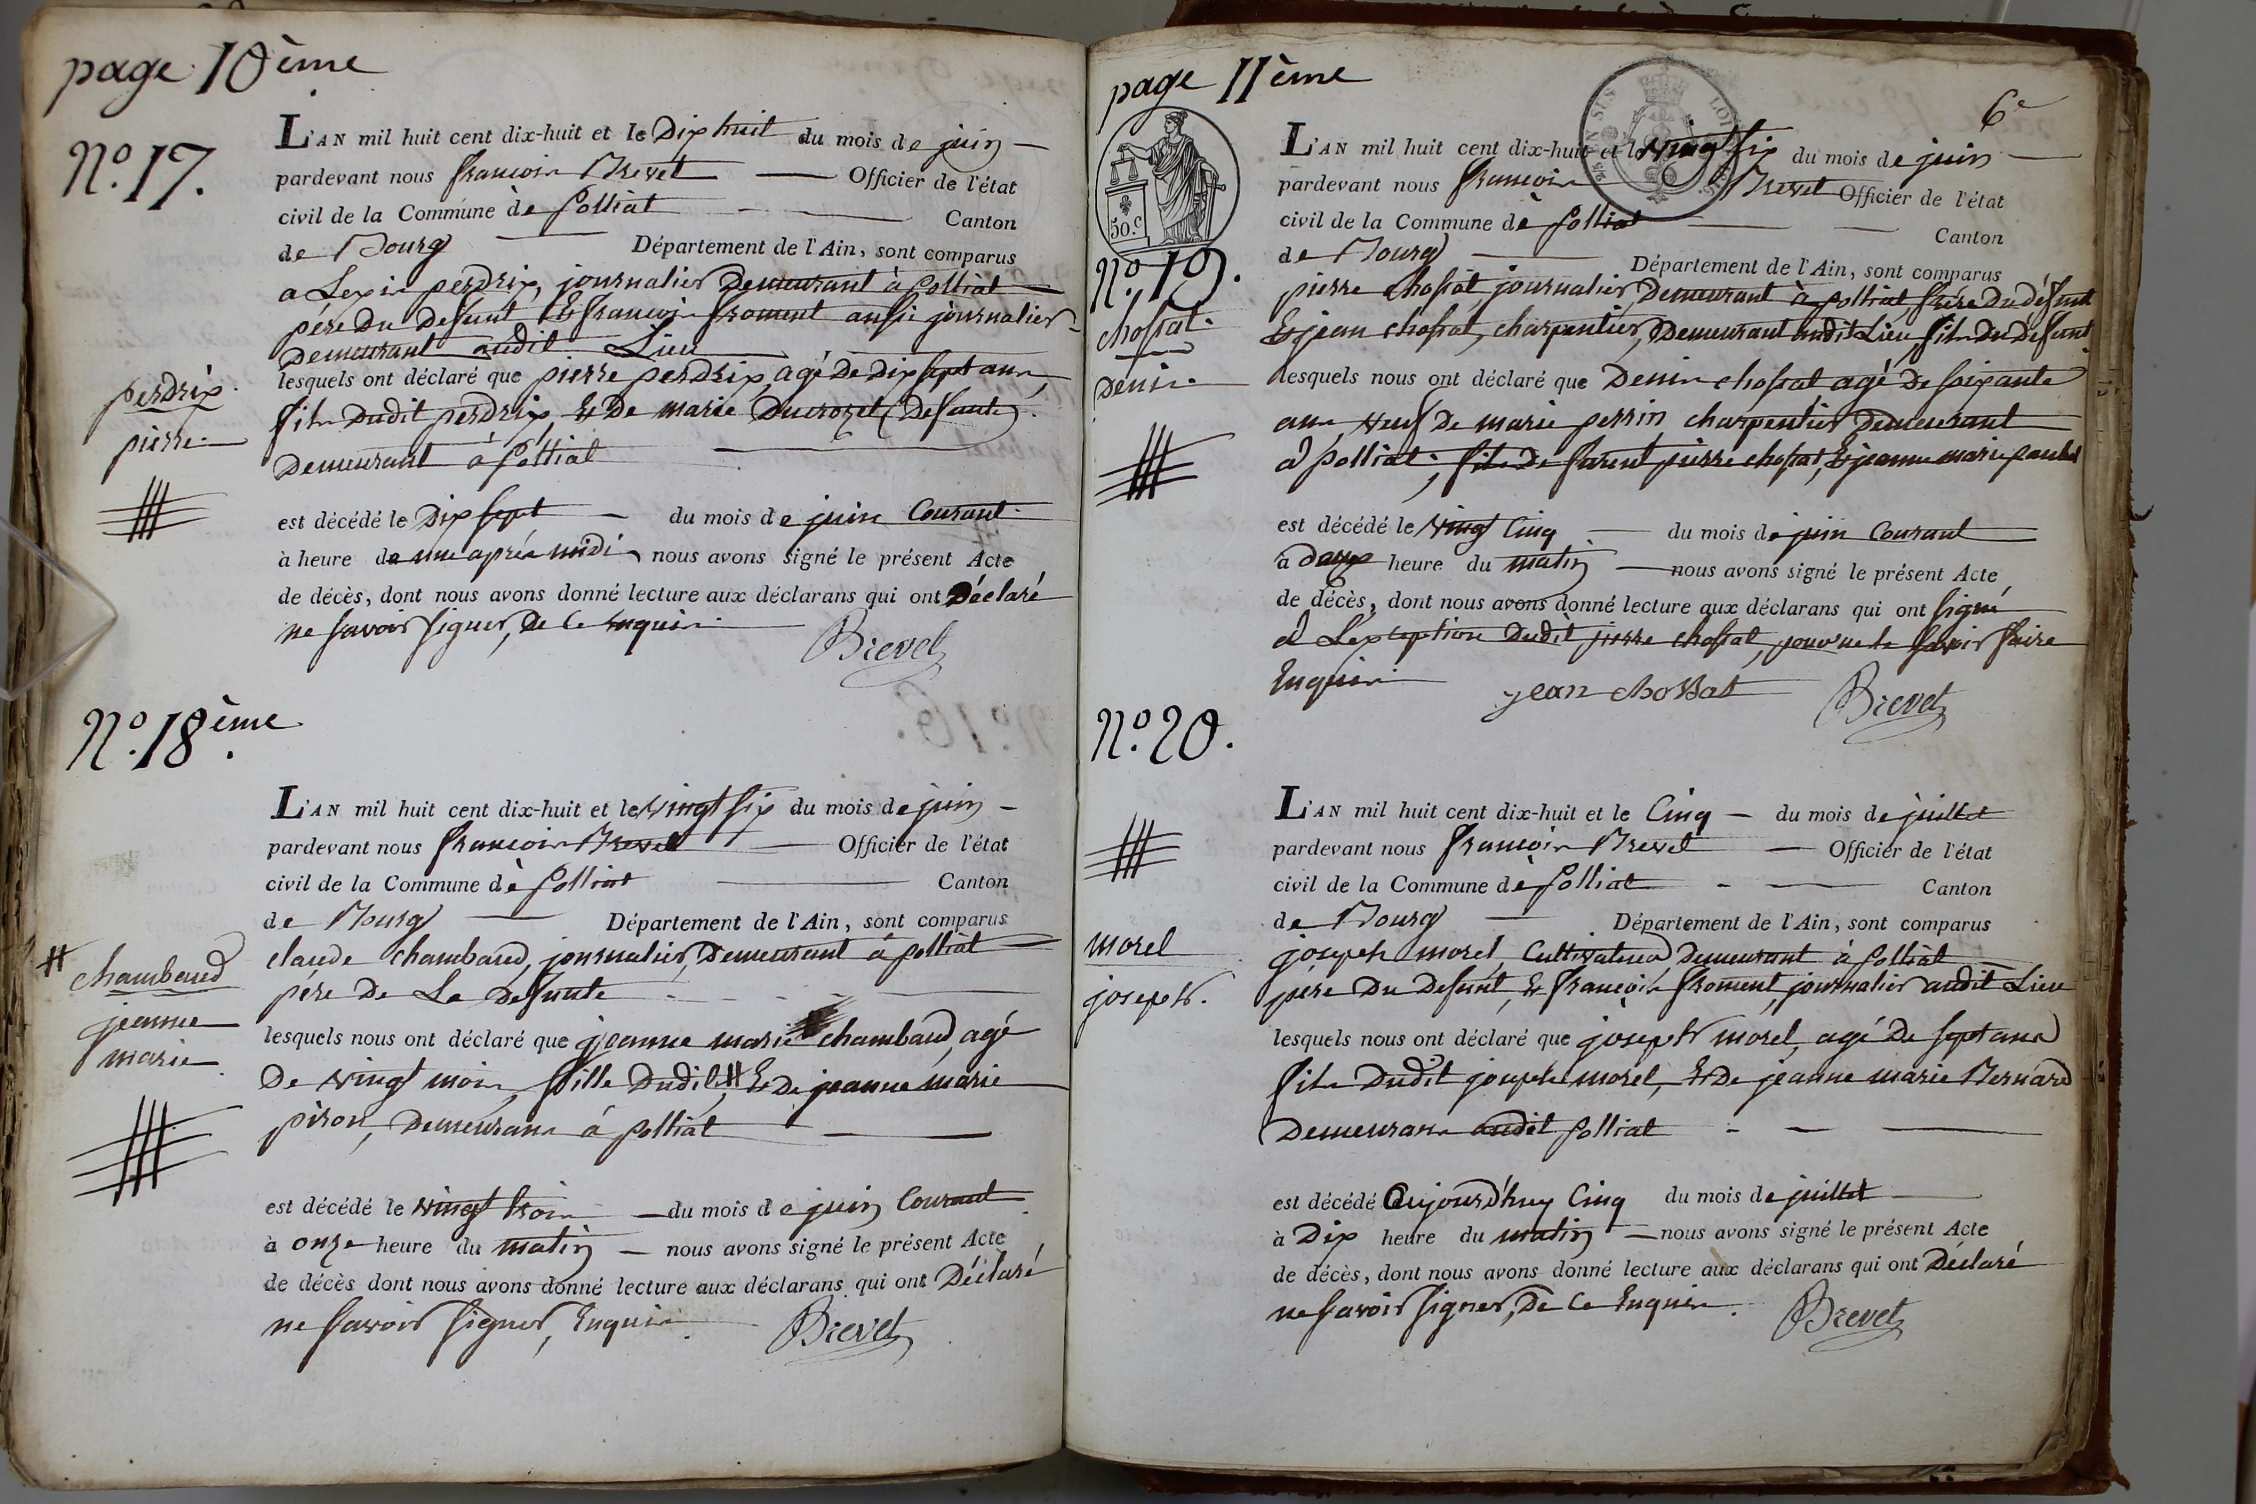 page 10ème
N.º 17.
L'AN mil huit cent dix-huit et le Dix huit du mois de juin
pardevant nous francois Brevet Officier de l'état
civil de la Commune de Polliat Canton
de Bourg Département de l'Ain, sont comparus
a Lexis perdrix, journalier Demeurant à Polliat
père Du Defunt Et francois froment aussi journalier
Demeurant audit Lieu
perdrix
pierre
lesquels ont déclaré que pierre perdrix, agé De Dix sept ans,
fils Dudit perdrix, Et De marie Ducrozet (Defunte)
Demeurant à Polliat
est décédé le Dix sept du mois de juin Courant
à heure de une après midi, nous avons signé le présent Acte
de décès, dont nous avons donné lecture aux déclarans qui ont Déclaré
ne savoir signer, De ce Enquis.
Brevet
N.º 18ème
L'AN mil huit cent dix-huit et le vingt six du mois de juin
pardevant nous francois Brevet Officier de l'état
civil de la Commune de Polliat Canton
de Bourg Département de l'Ain, sont comparus
# chambaud
jeanne
marie
claude chambaud, journalier, Demeurant à polliat
père De La Defunte
lesquels nous ont déclaré que jeanne marie chambaud, agé
De vingt mois, fille Dudit, # Et De jeanne marie
piron, Demeurans à polliat
est décédé le vingt trois du mois de juin Courant
à onze heure du matin nous avons signé le présent Acte
de décès dont nous avons donné lecture aux déclarans qui ont Déclaré
ne savoir signer, Enquis
Brevet
page 11ème
6e
50.c
N.º 19.
chossat
Denis
L'AN mil huit cent dix-huit et le vingt six du mois de juin
pardevant nous francois Brevet Officier de l'état
civil de la Commune de Polliat Canton
de Bourg Département de l'Ain, sont comparus
pierre chossat, journalier, Demeurant à polliat frère Du défunt
Et jean chossat, charpentier, Demeurant audit Lieu, fils Du Défunt
lesquels nous ont déclaré que Denis chossat agé De soixante
ans veuf De marie perrin charpentier Demeurant
à polliat, fils De furent pierre chossat, Et jeanne marie
est décédé le vingt Cinq du mois de juin Courant
à Deux heure du matin nous avons signé le présent Acte
de décès, dont nous avons donné lecture aux déclarans qui ont signé
à L'exception Dudit pierre chossat, pour ne le savoir faire
Enquis
jean chossat
Brevet
N.º 20.
L'AN mil huit cent dix-huit et le Cinq du mois de juillet
pardevant nous francois Brevet Officier de l'état
civil de la Commune de Polliat Canton
de Bourg Département de l'Ain, sont comparus
morel
joseph.
joseph morel, Cultivateur Demeurant à Polliat
père Du Defunt, Et francois froment, journalier audit Lieu
lesquels nous ont déclaré que joseph morel, agé De sept ans
fils Dudit joseph morel, Et De jeanne marie Bernard
Demeurans audit Polliat
est décédé aujourd'huy Cinq du mois de juillet
à Dix heure du matin nous avons signé le présent Acte
de décès, dont nous avons donné lecture aux déclarans qui ont Déclaré
ne savoir signer, De ce Enquis.
Brevet